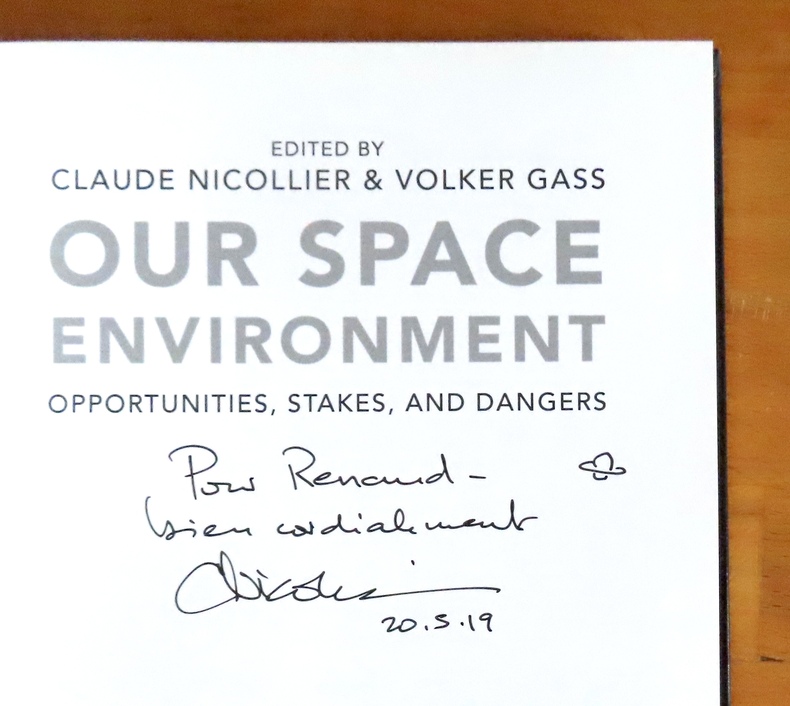 EDITED BY
CLAUDE NICOLLIER & VOLKER GASS
OUR SPACE
ENVIRONMENT
OPPORTUNITIES, STAKES, AND DANGERS
Pour Renaud -
bien cordialement
20.5.19